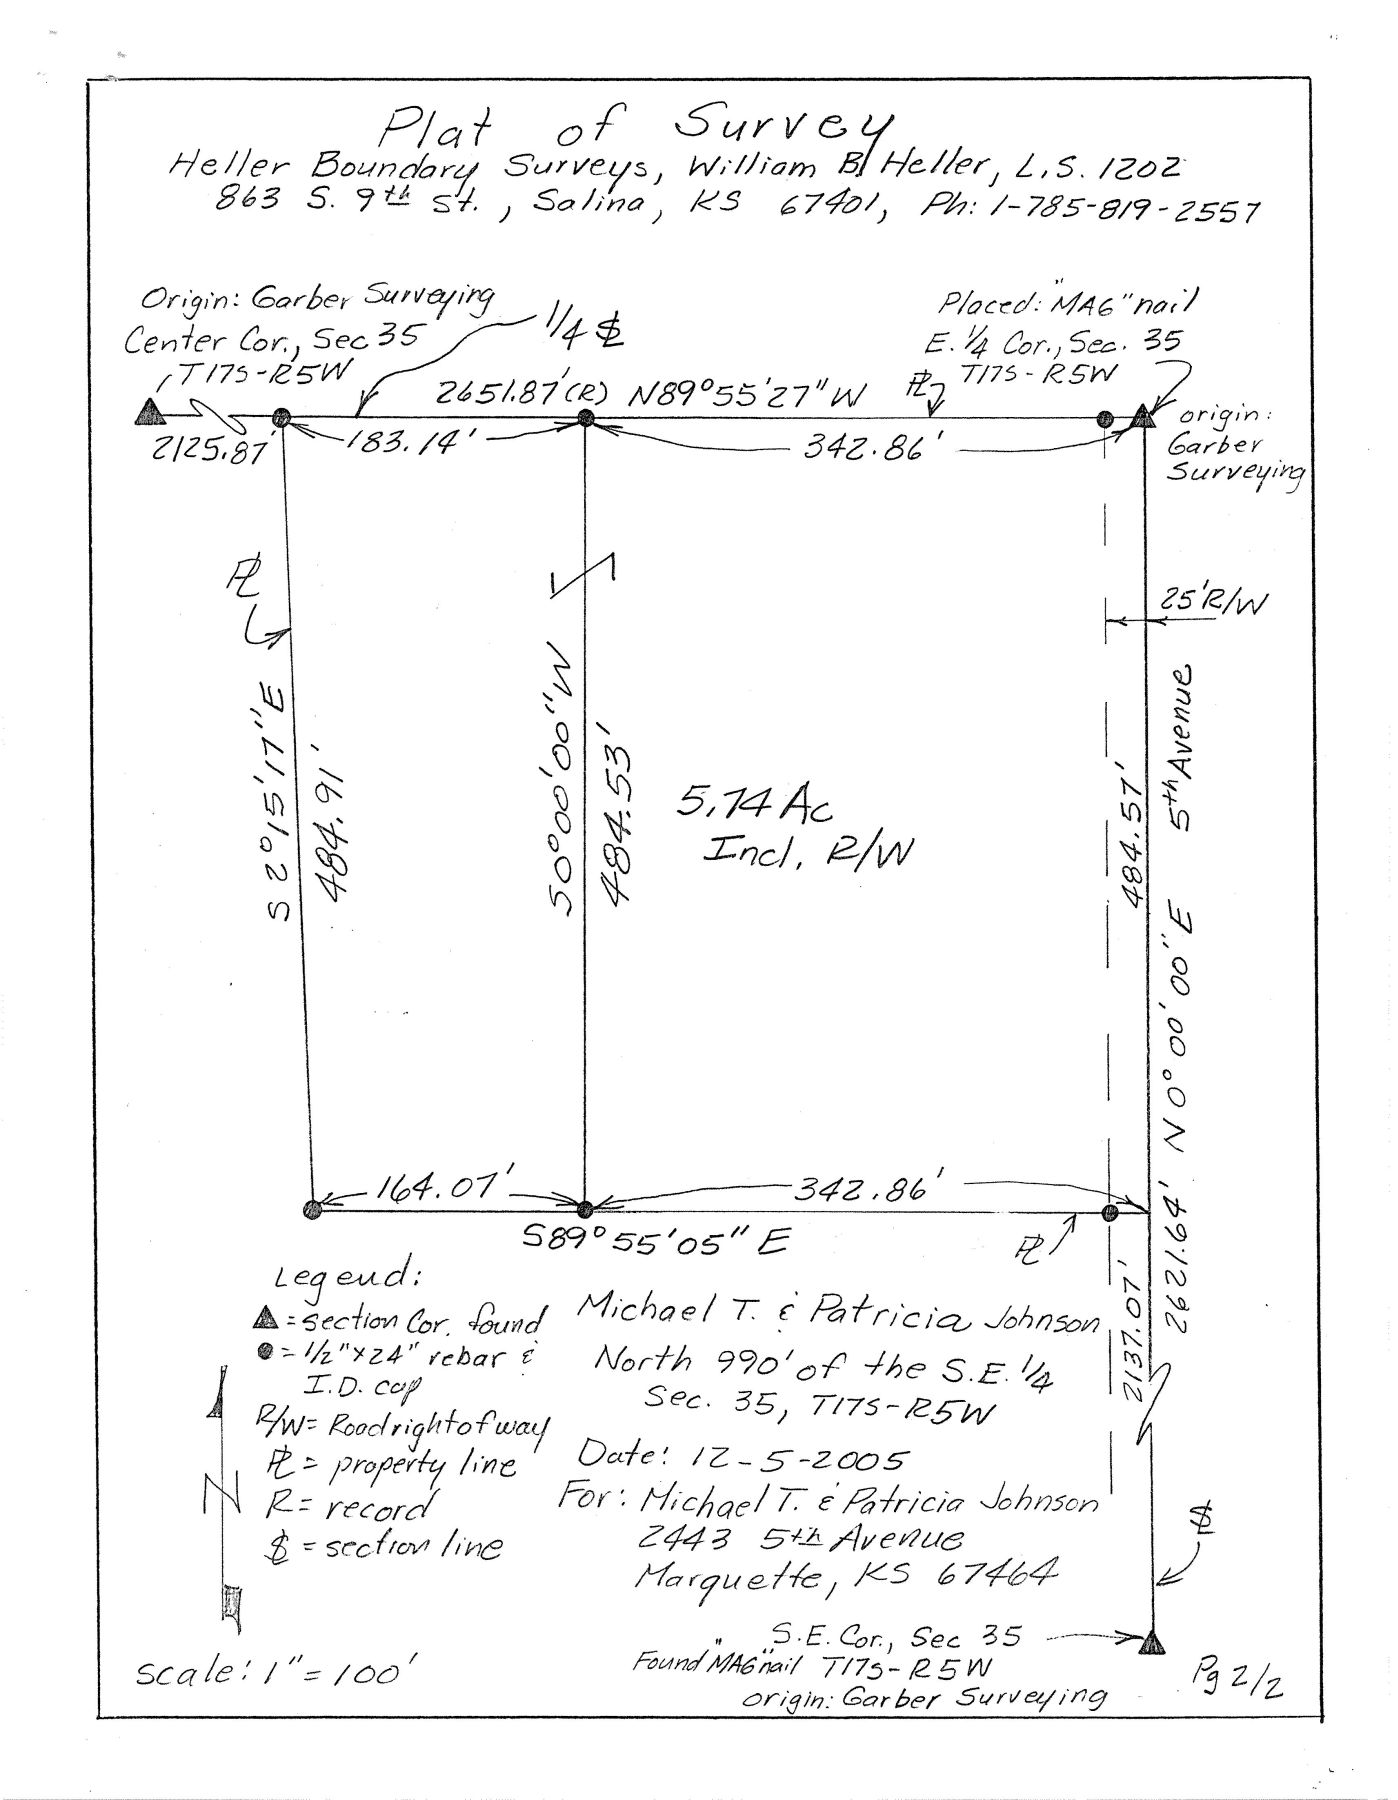 Plat of Survey
Heller Boundary Surveys, William B. Heller, L.S. 1202
863 S. 9th St., Salina, KS 67401, Ph: 1-785-819-2557
Origin: Garber Surveying
Center Cor., Sec 35
T17S-R5W
1/4 SL
Placed: "MAG" nail
E. 1/4 Cor., Sec. 35
T17S-R5W
origin:
Garber
Surveying
2651.87'(R) N89°55'27"W
PL
2125.87'
183.14'
342.86'
PL
25' R/W
S 2°15'17"E
484.91'
S0°00'00"W
484.53'
5.74 Ac
Incl. R/W
484.57'
5th Avenue
2621.64' N 0°00'00" E
164.07'
342.86'
S89°55'05" E
PL
2137.07'
Legend:
▲ = section Cor. found
● = 1/2"x24" rebar &
I.D. cap
R/W = Road right of way
PL = property line
R = record
SL = section line
N
Scale: 1" = 100'
Michael T. & Patricia Johnson
North 990' of the S.E. 1/4
Sec. 35, T17S-R5W
Date: 12-5-2005
For: Michael T. & Patricia Johnson
2443 5th Avenue
Marquette, KS 67464
SL
S.E. Cor., Sec 35
Found "MAG" nail T17S-R5W
origin: Garber Surveying
Pg 2/2